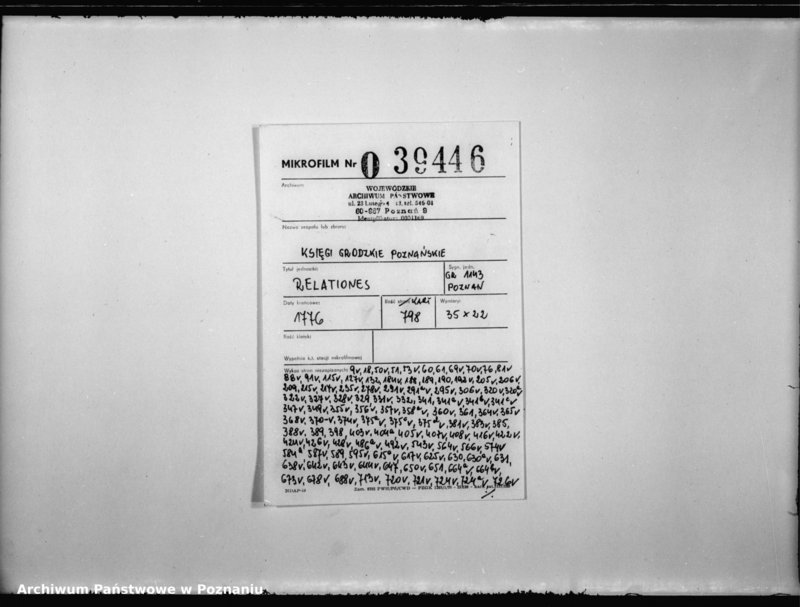 MIKROFILM Nr 0 39446
Archiwum:
WOJEWÓDZKIE
ARCHIWUM PAŃSTWOWE
60-967 Poznań 9
Nazwa zespołu lub zbioru:
KSIĘGI GRODZKIE POZNAŃSKIE
Tytuł jednostki:
RELATIONES
Sygn. jedn.
GR 1143
POZNAŃ
Daty krańcowe:
1776
Ilość stron KART
798
Wymiary:
35 x 22
Ilość klatek
Wypełnia k.t. stacji mikrofilmowej
Wykaz stron niezapisanych: 9v, 18, 50v, 51, 60, 61, 69v, 70v, 76, 81v
88v, 91v, 115v, 127v, 132, 188, 189, 190, 192v, 205v, 206v,
209, 215v, 217v, 235v, 278v, 291v, 295v, 306v, 320v
322v, 327v, 328v, 329, 331v, 332, 341,
347v, 349v, 355v, 356v, 357v, 358ᵃv, 360v, 361, 364v, 365v
368v, 370v, 374v, 375ᵃv, 381v, 383v, 385,
388v, 389, 398, 403v, 404ᵃ, 405v, 407v, 408v, 416v, 422v,
424v, 426v, 428v, 486ᵃv, 492v, 543v, 564v, 566v, 574v
584ᵃ, 587v, 589, 595v, 615ᵃv, 617v, 625v, 630, 630ᵃv, 631,
638v, 642v, 643v, 644v, 647, 650v, 651, 664ᵃv,
673v, 678v, 688v, 713v, 720v, 721v, 724v, 724ᵃv, 726v
Archiwum Państwowe w Poznaniu